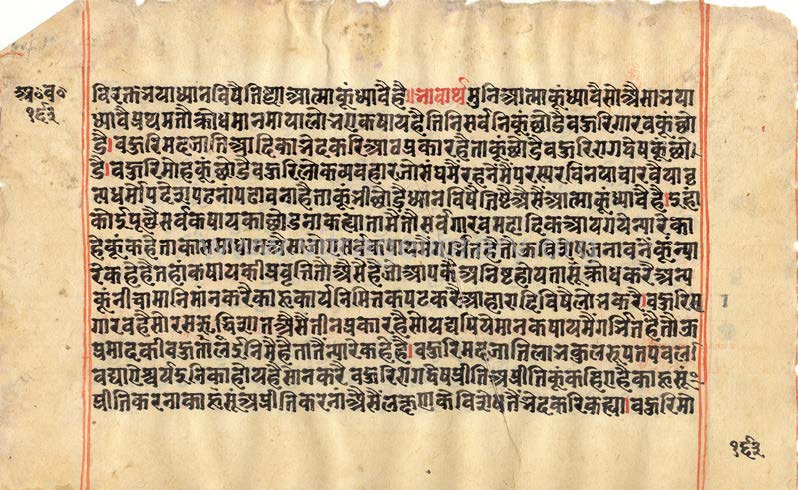 अ॰व॰
१६३
विरक्त भया ध्यान विषै तिष्ठ्या आत्माकूं ध्यावै है॥ भावार्थ मुनि आत्माकूं ध्यावै सो ऐसा भया
ध्यावै प्रथम तौ क्रोध मान माया लोभ ए कषाय है तिनि सर्वनिकूं छोडै बहुरि गारवकूं छो
डै। बहुरि मद जाति आदिका भेद करि आठ प्रकार है ताकूं छोडै बहुरि राग द्वेषकूं छो
डै। बहुरि मोहकूं छोडै बहुरि लोकव्यवहार जो संघमैं रहनेमैं परस्पर विनयाचार वैयावृ
त्य धर्मोपदेश पठनां पढावना है ताकूं भी छोडै ध्यान विषै तिष्ठै ऐसैं आत्माकूं ध्यावै है। इहां
कोई पूछै सर्व कषायका छोडना कह्या तामैं तौ सर्व गारव मदादिक आय गये न्यारे का
हेकूं कहे ताका समाधान ऐसैं जो ए सर्व कषायमैं गर्भित है तौऊ विशेष जनावनेकूं न्या
रे कहे है तहां कषायकी प्रवृत्ति तौ ऐसैं है जो आपकै अनिष्ट होय तासूं क्रोध करै अन्य
कूं नीचा मानि मान करै काहू कार्य निमित्त कपट करै आहारादि विषै लोभ करै। बहुरि य
गारव है सो रस ऋद्धि सात ऐसैं तीन प्रकार है सो यद्यपि ये मान कषायमैं गर्भित है तौऊ
प्रमादकी बहुलता इनिमैं है तातैं न्यारे कहे है। बहुरि मद जाति लाभ कुल रूप तप बल
विद्या ऐश्वर्य इनिका होय है सो न करै बहुरि राग द्वेष प्रीति अप्रीतिकूं कहिए है काहूसूं
प्रीति करना काहूसूं अप्रीति करना ऐसैं लक्षणके विशेषतैं भेद करि कह्या। बहुरि मो
१६३